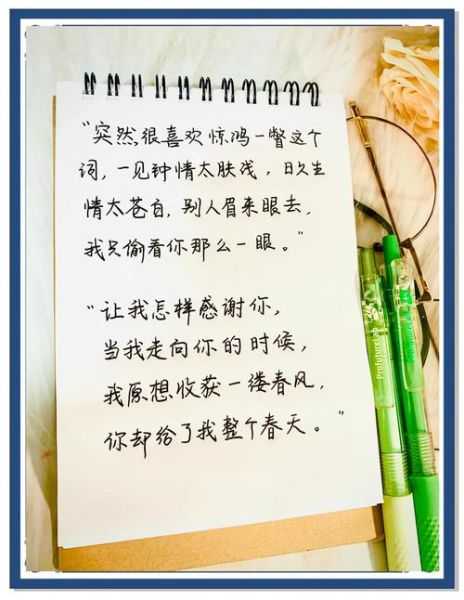 “突然很喜欢惊鸿一瞥这个
词，一见钟情太肤浅，日久生
情太苍白，别人眉来眼去，
我只偷看你那么一眼。”
“让我怎样感谢你，
当我走向你的时候，
我原想收获一缕春风，
你却给了我整个春天。”
ProfutureLab